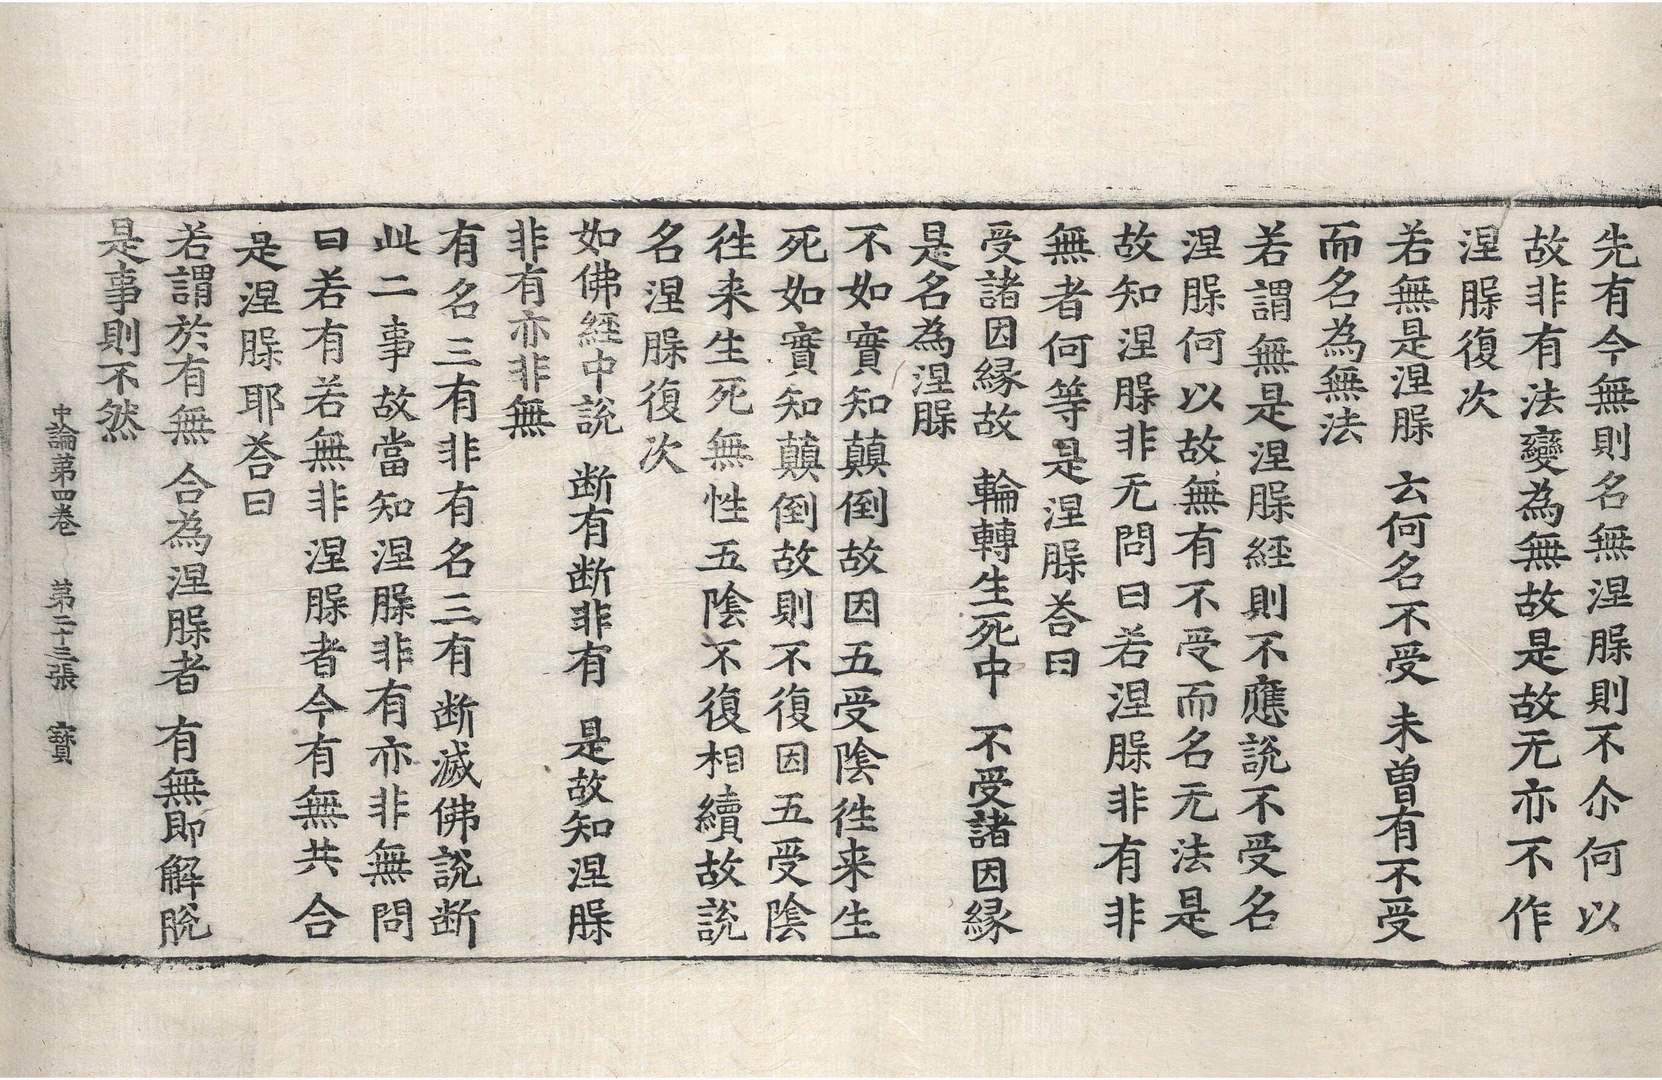 先有今無則名無涅脲則不尒何以
故非有法變為無故是故无亦不作
涅脲復次
若無是涅脲 云何名不受 未曽有不受
而名為無法
若謂無是涅脲經則不應說不受名
涅脲何以故無有不受而名无法是
故知涅脲非无問曰若涅脲非有非
無者何等是涅脲荅曰
受諸因縁故 輪轉生死中 不受諸因縁
是名為涅脲
不如實知顛倒故因五受陰徃来生
死如實知顛倒故則不復因五受陰
徃来生死無性五陰不復相續故說
名涅脲復次
如佛經中說 断有断非有 是故知涅脲
非有亦非無
有名三有非有名三有断滅佛說断
此二事故當知涅脲非有亦非無問
曰若有若無非涅脲者今有無共合
是涅脲耶荅曰
若謂於有無 合為涅脲者 有無即解脫
是事則不然
中論第四卷 第二十三張 寳